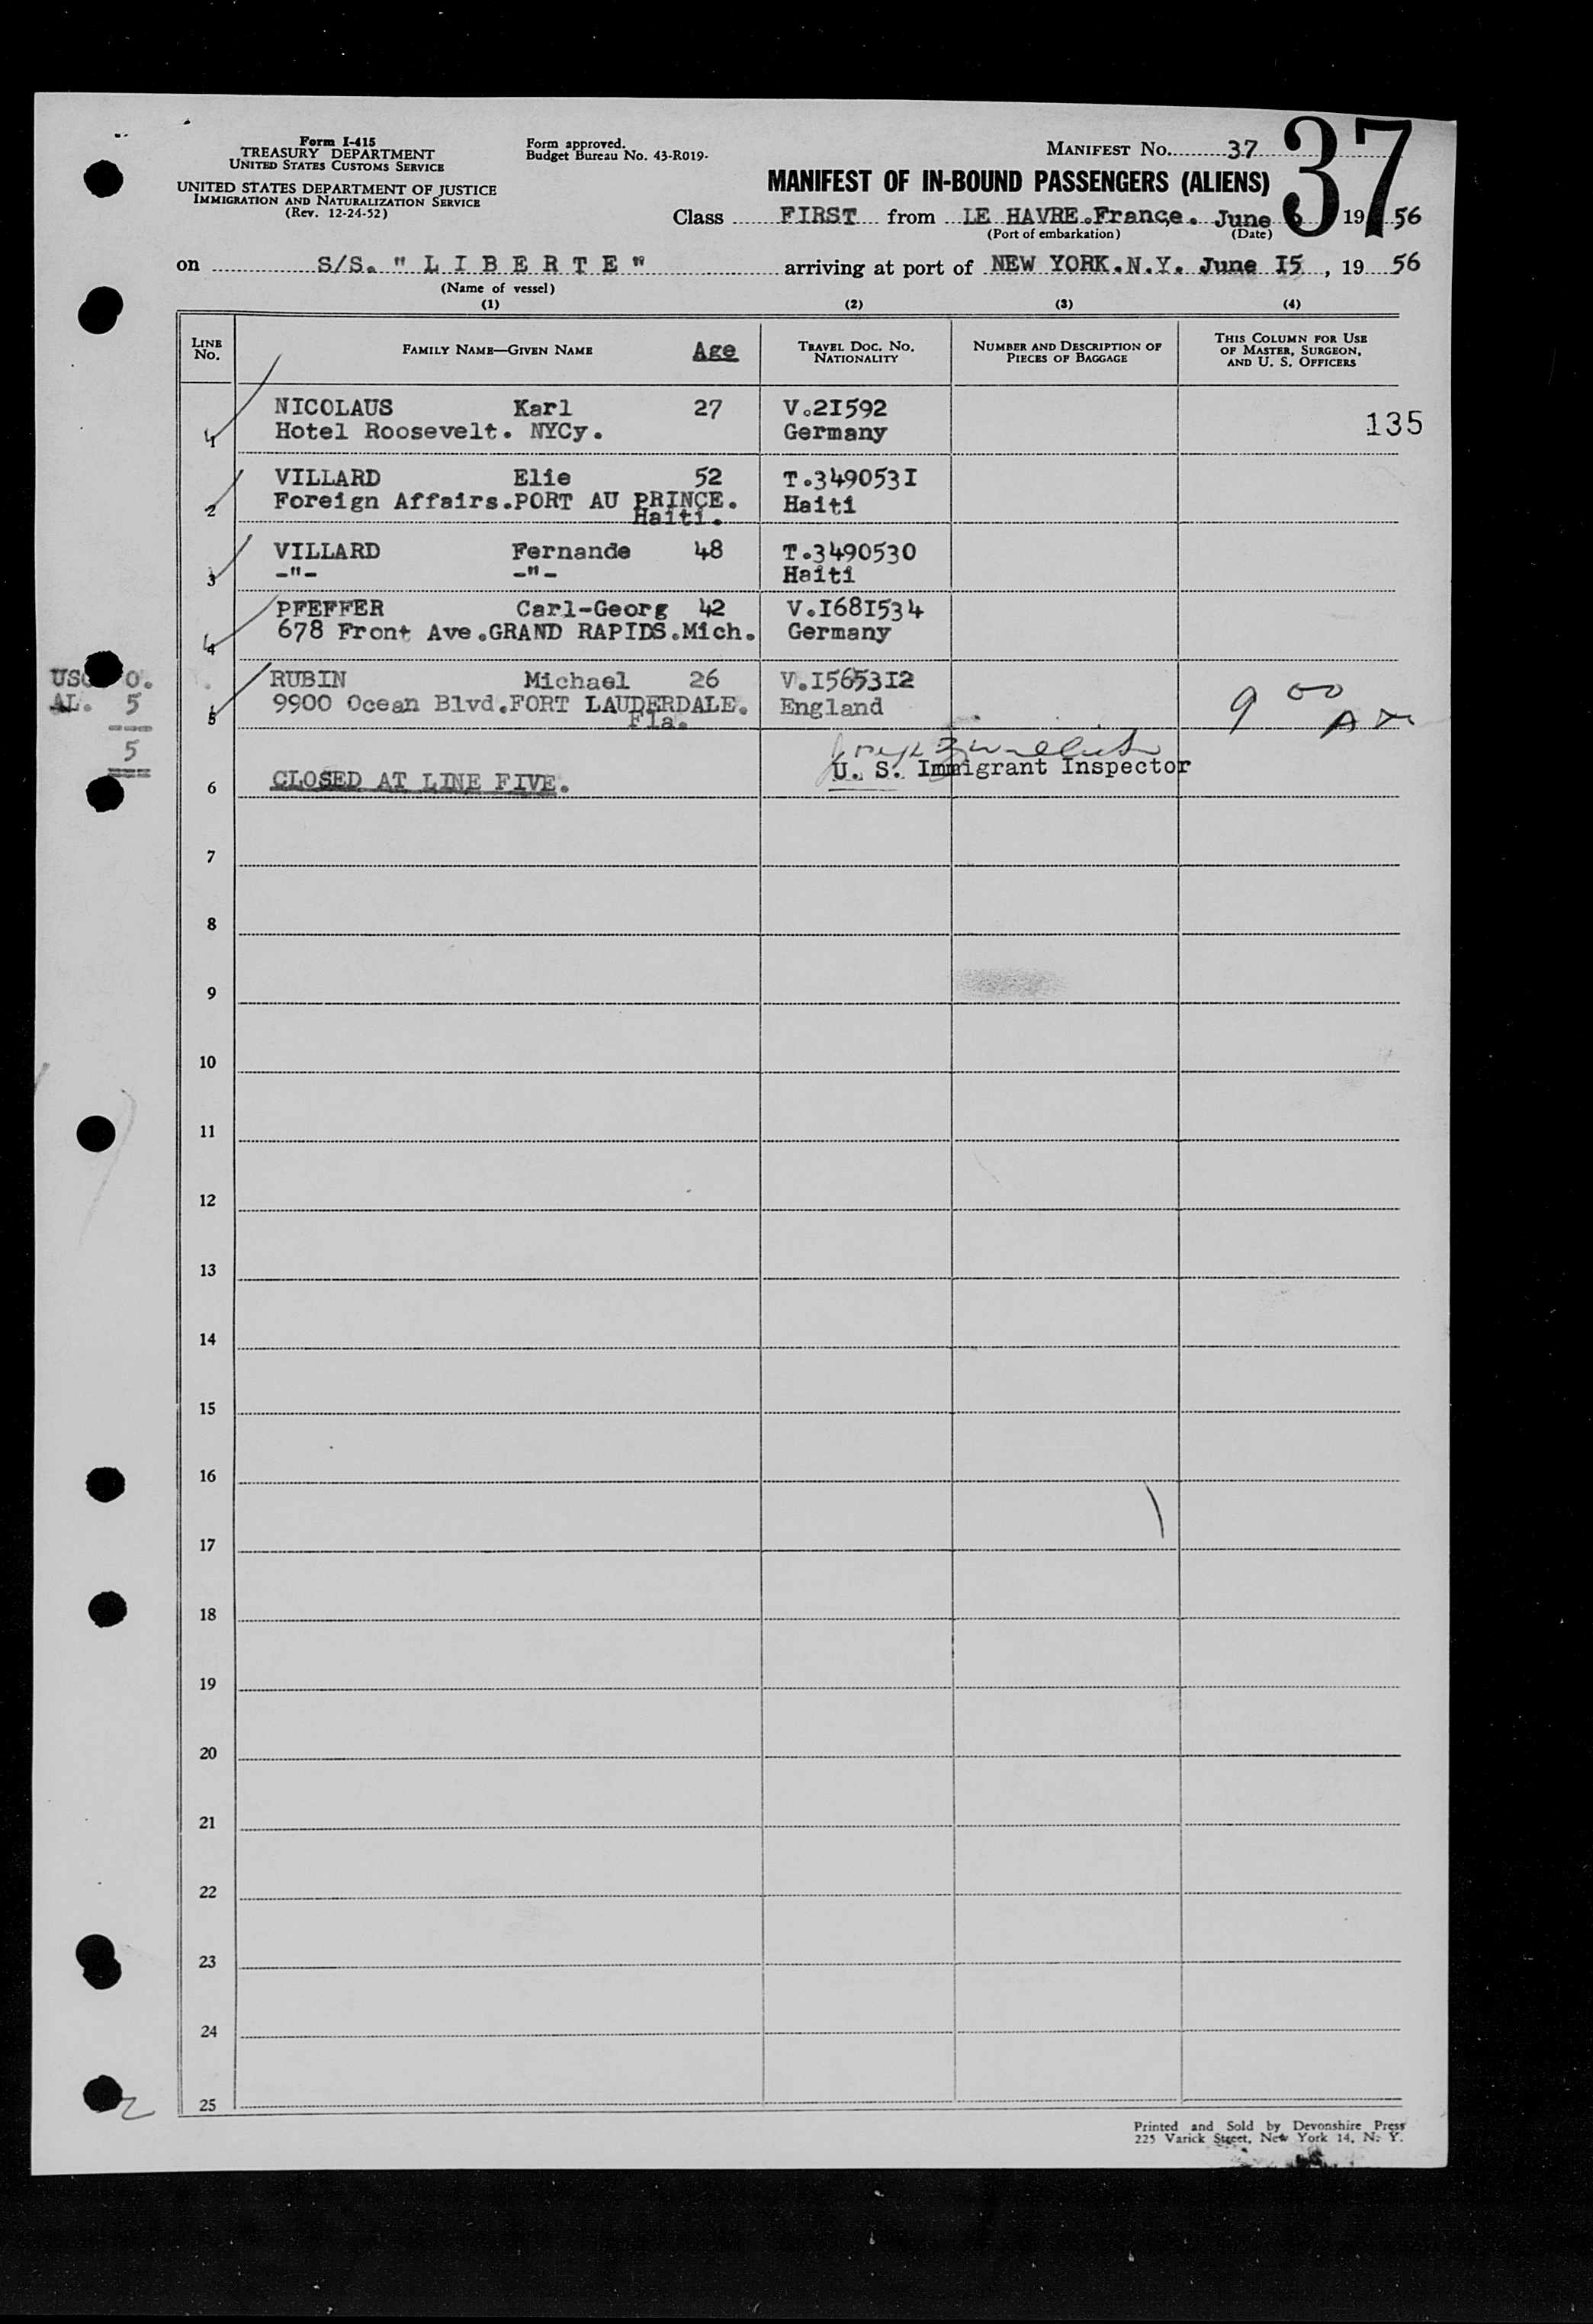 Form I-415
TREASURY DEPARTMENT
UNITED STATES CUSTOMS SERVICE
UNITED STATES DEPARTMENT OF JUSTICE
IMMIGRATION AND NATURALIZATION SERVICE
(Rev. 12-24-52)
Form approved.
Budget Bureau No. 43-R019-
MANIFEST No. 37
37
MANIFEST OF IN-BOUND PASSENGERS (ALIENS)
Class FIRST from LE HAVRE.France. June 1956
(Port of embarkation) (Date)
on S/S. " L I B E R T E " arriving at port of NEW YORK.N.Y. June I5, 1956
(Name of vessel)
(1) (2) (3) (4)
LINE No. FAMILY NAME—GIVEN NAME Age TRAVEL DOC. NO. NATIONALITY NUMBER AND DESCRIPTION OF PIECES OF BAGGAGE THIS COLUMN FOR USE OF MASTER, SURGEON, AND U. S. OFFICERS
NICOLAUS Karl 27 V.2I592
1 Hotel Roosevelt. NYCy. Germany 135
VILLARD Elie 52 T.349053I
2 Foreign Affairs.PORT AU PRINCE. Haiti
Haiti.
VILLARD Fernande 48 T.3490530
3 -"- -"- Haiti
PFEFFER Carl-Georg 42 V.I68I534
4 678 Front Ave.GRAND RAPIDS.Mich. Germany
USC 0.
RUBIN Michael 26 V.I5653I2
AL. 5
5 9900 Ocean Blvd.FORT LAUDERDALE. England 9 00 AM
Fla.
5
U. S. Immigrant Inspector
6 CLOSED AT LINE FIVE.
7
8
9
10
11
12
13
14
15
16
17
18
19
20
21
22
23
24
25
2
Printed and Sold by Devonshire Press
225 Varick Street, New York 14, N. Y.